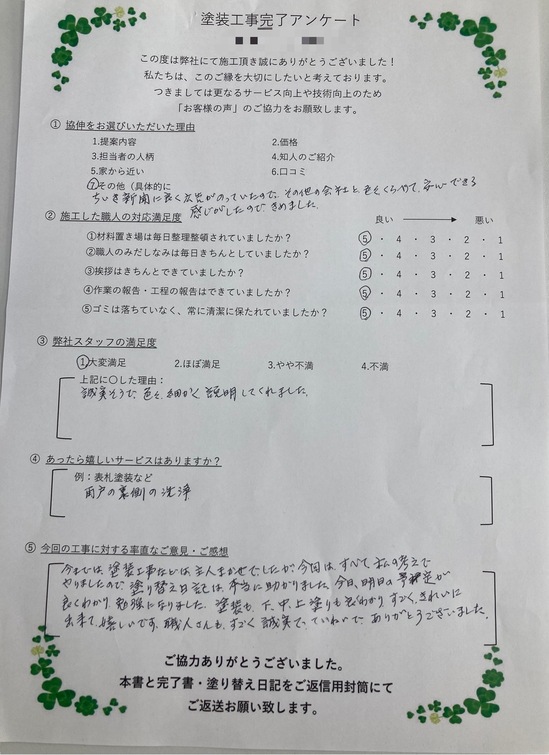 塗装工事完了アンケート
この度は弊社にて施工頂き誠にありがとうございました！
私たちは、このご縁を大切にしたいと考えております。
つきましては更なるサービス向上や技術向上のため
「お客様の声」のご協力をお願致します。
① 協伸をお選びいただいた理由
1.提案内容 2.価格
3.担当者の人柄 4.知人のご紹介
5.家から近い 6.口コミ
⑦その他（具体的に
ちいき新聞に良く広告がのっていたので、その他の会社と色々くらべて、安心できる
感じがしたのできめました。
② 施工した職人の対応満足度 良い → 悪い
①材料置き場は毎日整理整頓されていましたか？ ⑤ ・ 4 ・ 3 ・ 2 ・ 1
②職人のみだしなみは毎日きちんとしていましたか？ ⑤ ・ 4 ・ 3 ・ 2 ・ 1
③挨拶はきちんとできていましたか？ ⑤ ・ 4 ・ 3 ・ 2 ・ 1
④作業の報告・工程の報告はできていましたか？ ⑤ ・ 4 ・ 3 ・ 2 ・ 1
⑤ゴミは落ちていなく、常に清潔に保たれていましたか？ ⑤ ・ 4 ・ 3 ・ 2 ・ 1
③ 弊社スタッフの満足度
①大変満足 2.ほぼ満足 3.やや不満 4.不満
上記に○した理由：
誠実そうで、色々細かく説明してくれました。
④ あったら嬉しいサービスはありますか？
例：表札塗装など
雨戸の裏側の洗浄
⑤ 今回の工事に対する率直なご意見・ご感想
今までは、塗装工事などは、主人まかせでしたが、今回は、すべて、私の考えで
やりましたので、塗り替え日記は、本当に助かりました。今日、明日の予定が
良くわかり、勉強になりました。塗装も、下、中、上塗りも良くわかり、すごく、きれいに
出来て、嬉しいです。職人さんも、すごく誠実で、ていねいで、ありがとうございました。
ご協力ありがとうございました。
本書と完了書・塗り替え日記をご返信用封筒にて
ご返送お願い致します。